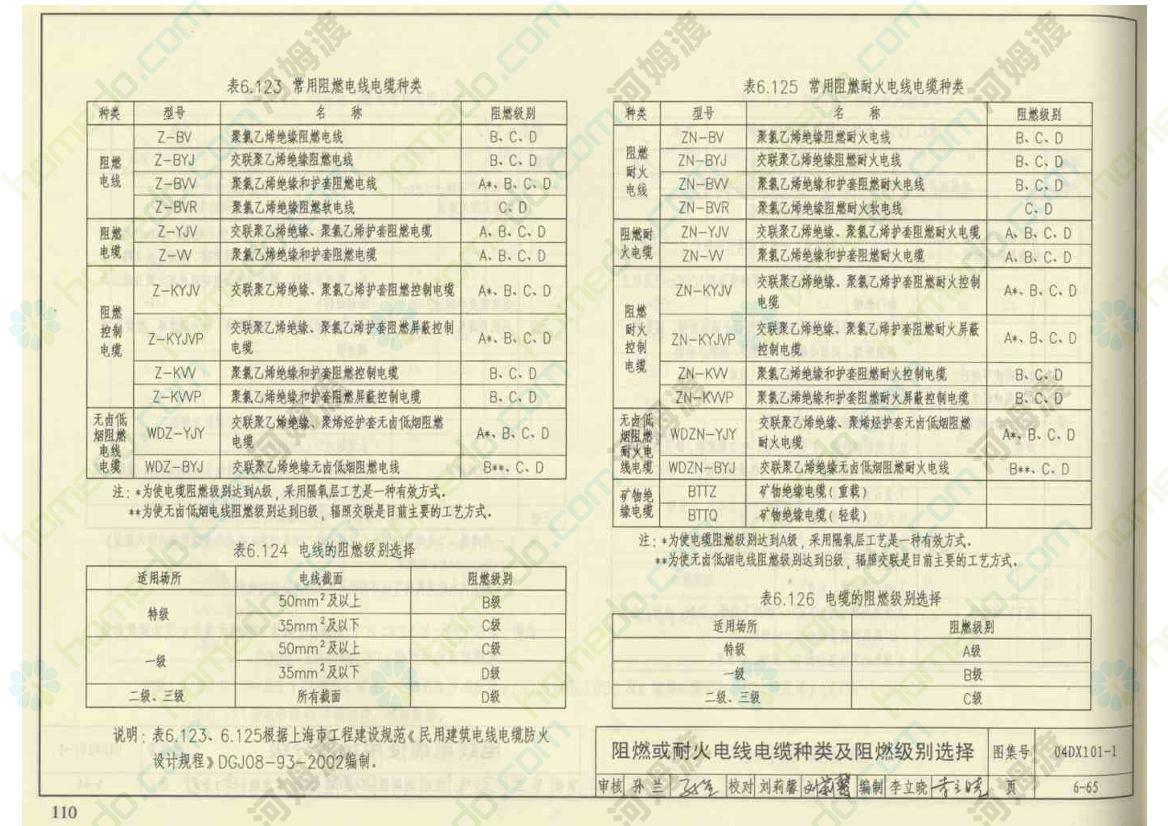 表6.123 常用阻燃电线电缆种类
种类 型号 名 称 阻燃级别
阻燃电线 Z-BV 聚氯乙烯绝缘阻燃电线 B、C、D
Z-BYJ 交联聚乙烯绝缘阻燃电线 B、C、D
Z-BVV 聚氯乙烯绝缘和护套阻燃电线 A*、B、C、D
Z-BVR 聚氯乙烯绝缘阻燃软电线 C、D
阻燃电缆 Z-YJV 交联聚乙烯绝缘、聚氯乙烯护套阻燃电缆 A、B、C、D
Z-VV 聚氯乙烯绝缘和护套阻燃电缆 A、B、C、D
阻燃控制电缆 Z-KYJV 交联聚乙烯绝缘、聚氯乙烯护套阻燃控制电缆 A*、B、C、D
Z-KYJVP 交联聚乙烯绝缘、聚氯乙烯护套阻燃屏蔽控制
电缆 A*、B、C、D
Z-KVV 聚氯乙烯绝缘和护套阻燃控制电缆 B、C、D
Z-KVVP 聚氯乙烯绝缘和护套阻燃屏蔽控制电缆 B、C、D
无卤低烟阻燃电线电缆 WDZ-YJY 交联聚乙烯绝缘、聚烯烃护套无卤低烟阻燃
电缆 A*、B、C、D
WDZ-BYJ 交联聚乙烯绝缘无卤低烟阻燃电线 B**、C、D
注：*为使电缆阻燃级别达到A级，采用隔氧层工艺是一种有效方式。
**为使无卤低烟电线阻燃级别达到B级，辐照交联是目前主要的工艺方式。
表6.124 电线的阻燃级别选择
适用场所 电线截面 阻燃级别
特级 50mm²及以上 B级
35mm²及以下 C级
一级 50mm²及以上 C级
35mm²及以下 D级
二级、三级 所有截面 D级
说明：表6.123、6.125根据上海市工程建设规范《民用建筑电线电缆防火
设计规程》DGJ08-93-2002编制.
表6.125 常用阻燃耐火电线电缆种类
种类 型号 名 称 阻燃级别
阻燃耐火电线 ZN-BV 聚氯乙烯绝缘阻燃耐火电线 B、C、D
ZN-BYJ 交联聚乙烯绝缘阻燃耐火电线 B、C、D
ZN-BVV 聚氯乙烯绝缘和护套阻燃耐火电线 B、C、D
ZN-BVR 聚氯乙烯绝缘阻燃耐火软电线 C、D
阻燃耐火电缆 ZN-YJV 交联聚乙烯绝缘、聚氯乙烯护套阻燃耐火电缆 A、B、C、D
ZN-VV 聚氯乙烯绝缘和护套阻燃耐火电缆 A、B、C、D
阻燃耐火控制电缆 ZN-KYJV 交联聚乙烯绝缘、聚氯乙烯护套阻燃耐火控制
电缆 A*、B、C、D
ZN-KYJVP 交联聚乙烯绝缘、聚氯乙烯护套阻燃耐火屏蔽
控制电缆 A*、B、C、D
ZN-KVV 聚氯乙烯绝缘和护套阻燃耐火控制电缆 B、C、D
ZN-KVVP 聚氯乙烯绝缘和护套阻燃耐火屏蔽控制电缆 B、C、D
无卤低烟阻燃耐火电线电缆 WDZN-YJY 交联聚乙烯绝缘、聚烯烃护套无卤低烟阻燃
耐火电缆 A*、B、C、D
WDZN-BYJ 交联聚乙烯绝缘无卤低烟阻燃耐火电线 B**、C、D
矿物绝缘电缆 BTTZ 矿物绝缘电缆（重载）
BTTQ 矿物绝缘电缆（轻载）
注：*为使电缆阻燃级别达到A级，采用隔氧层工艺是一种有效方式.
**为使无卤低烟电线阻燃级别达到B级，辐照交联是目前主要的工艺方式.
表6.126 电缆的阻燃级别选择
适用场所 阻燃级别
特级 A级
一级 B级
二级、三级 C级
阻燃或耐火电线电缆种类及阻燃级别选择 图集号 04DX101-1
审核 孙兰 校对 刘莉馨 编制 李立晓 李立晓 页 6-65
110
河姆渡
homedo.com